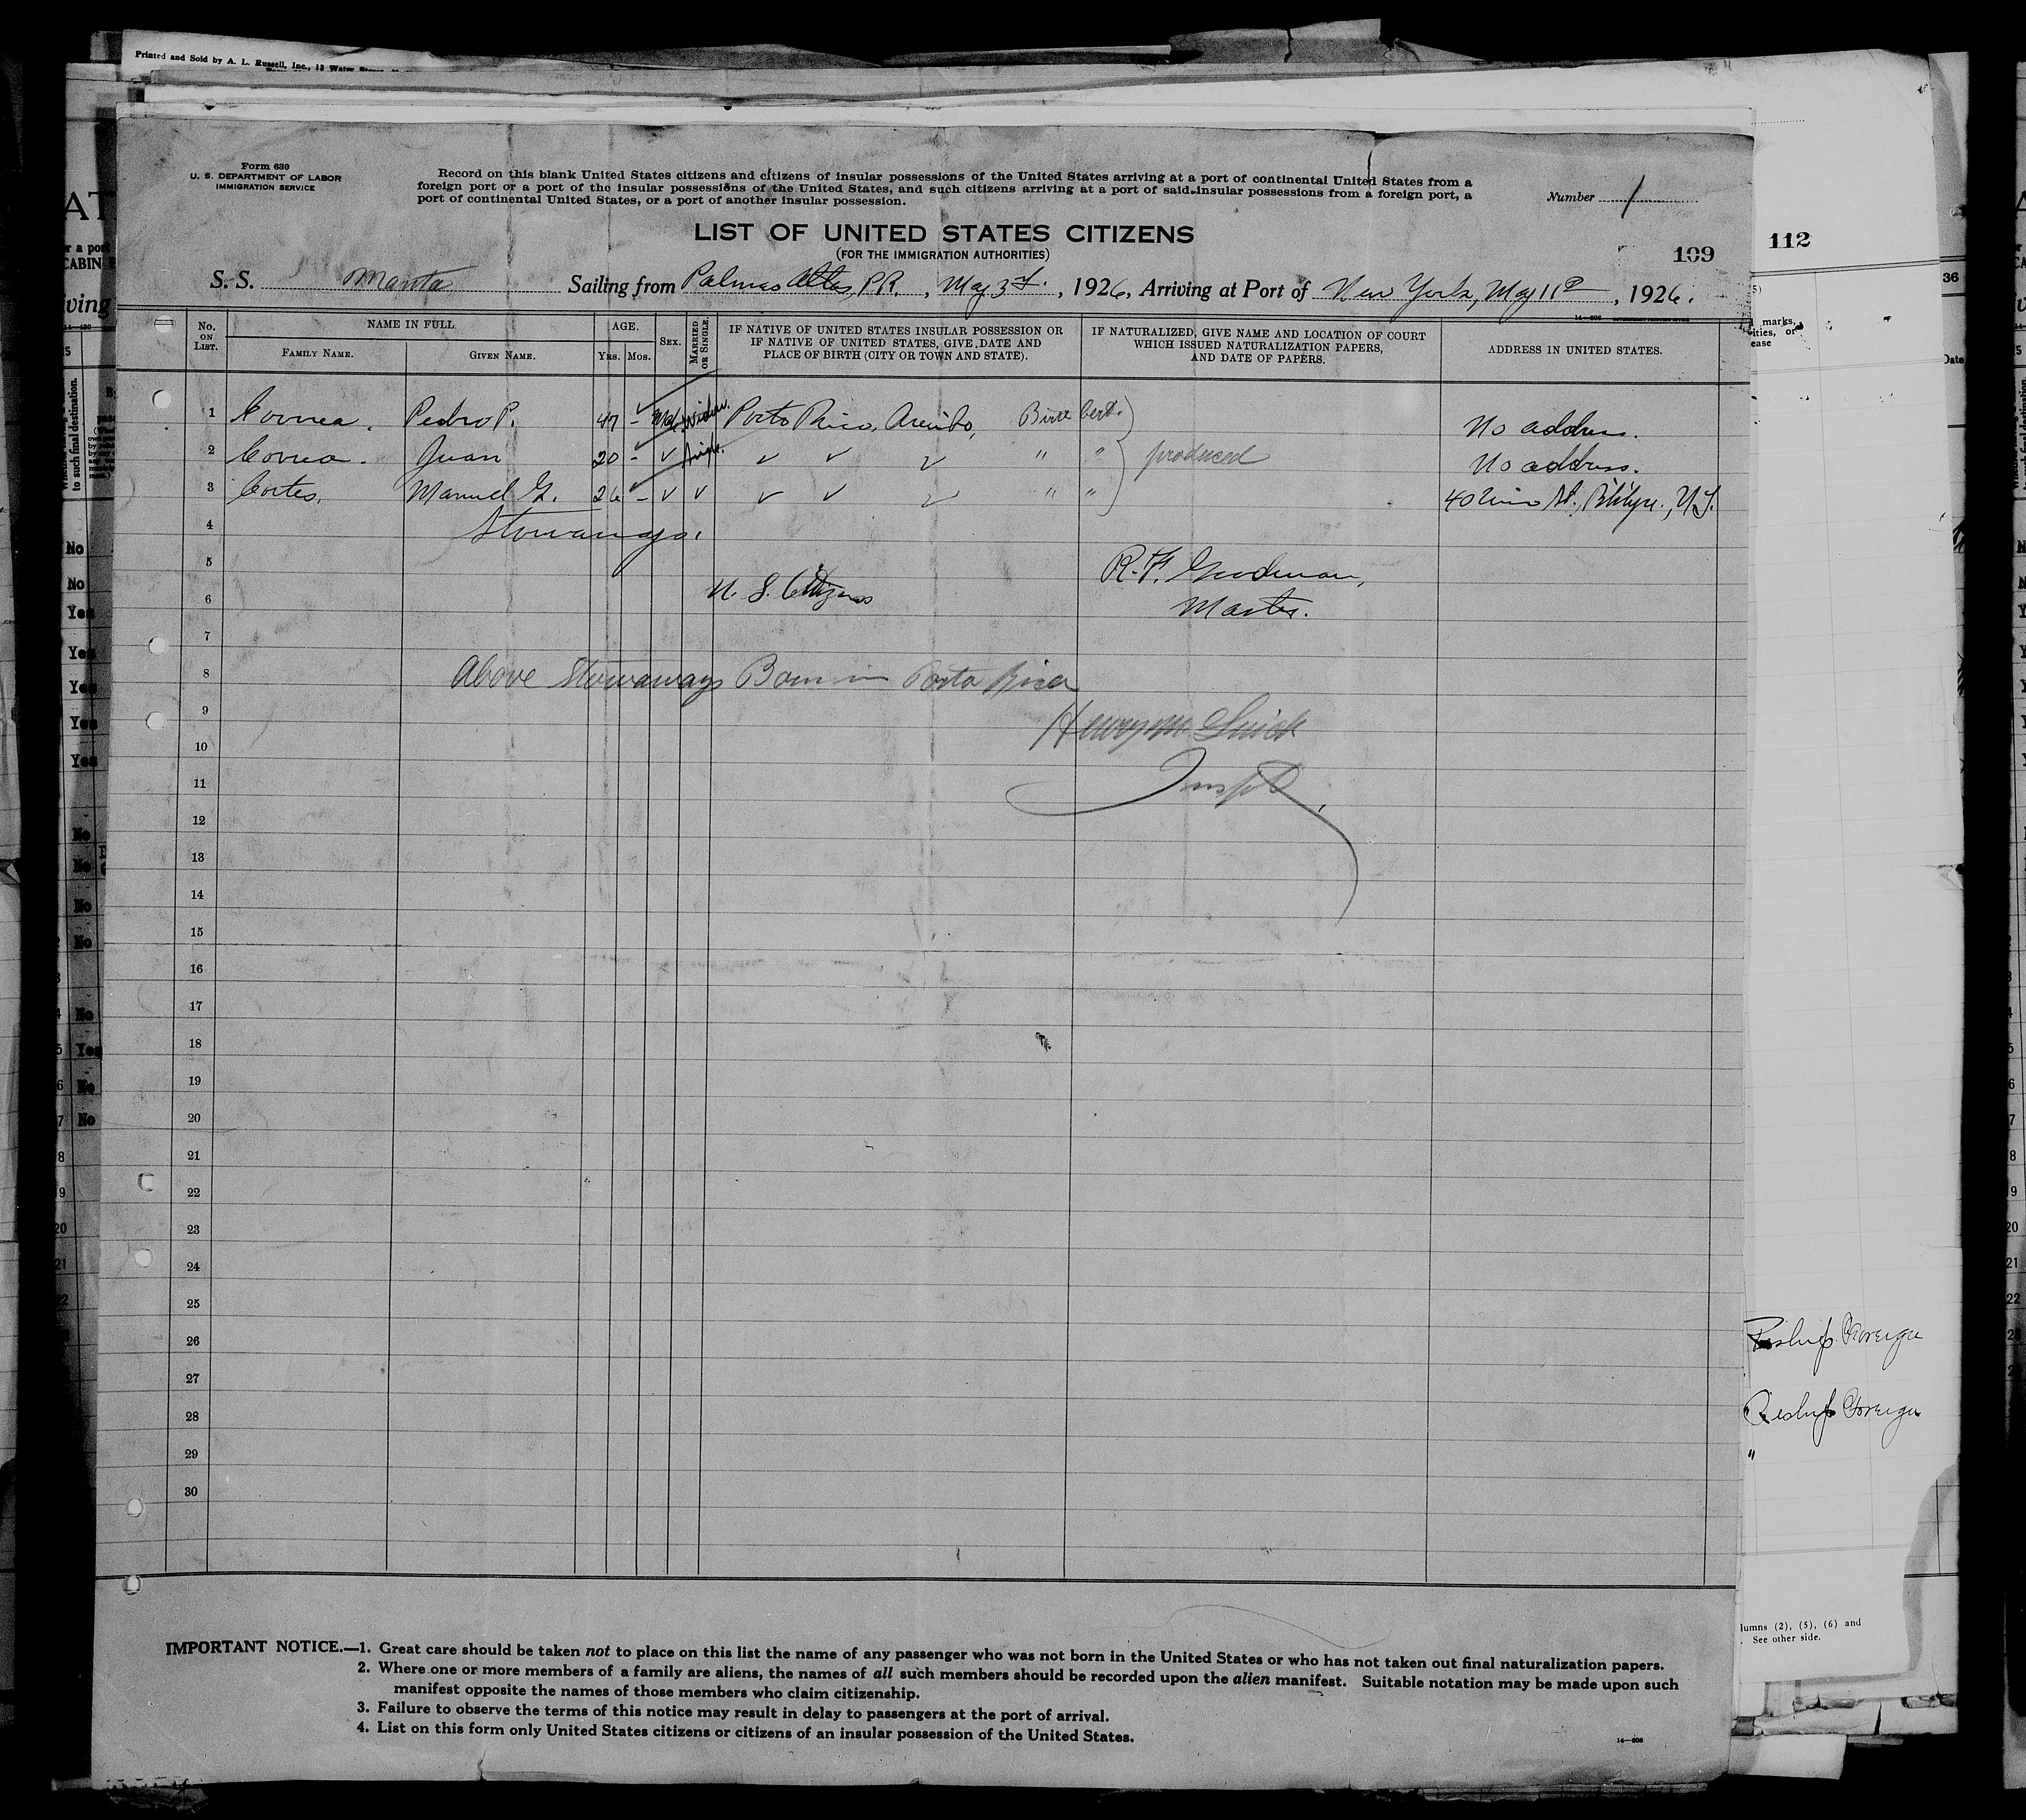 Printed and Sold by A. L. Russell, Inc., 13 Water
Form 630
U. S. DEPARTMENT OF LABOR
IMMIGRATION SERVICE
Record on this blank United States citizens and citizens of insular possessions of the United States arriving at a port of continental United States from a
foreign port or a port of the insular possessions of the United States, and such citizens arriving at a port of said insular possessions from a foreign port, a
port of continental United States, or a port of another insular possession.
Number 1
LIST OF UNITED STATES CITIZENS
(FOR THE IMMIGRATION AUTHORITIES)
109
112
S. S. Manta Sailing from Palmas Altas, P.R., May 3d., 1926, Arriving at Port of New York, May 11th, 1926.
No. ON LIST.
NAME IN FULL
FAMILY NAME.
GIVEN NAME.
AGE.
YRS. MOS.
SEX.
MARRIED OR SINGLE.
IF NATIVE OF UNITED STATES INSULAR POSSESSION OR
IF NATIVE OF UNITED STATES, GIVE DATE AND
PLACE OF BIRTH (CITY OR TOWN AND STATE).
IF NATURALIZED, GIVE NAME AND LOCATION OF COURT
WHICH ISSUED NATURALIZATION PAPERS,
AND DATE OF PAPERS.
ADDRESS IN UNITED STATES.
1 Correa. Pedro P. 47 - Male Widow. Porto Rico, Birth Cert. No address.
2 Correa. Juan 20 - ✓ Single. ✓ ✓ ✓ " " produced No address.
3 Cortes. Manuel G. 26 - ✓ ✓ ✓ ✓ ✓ " " 40 St., Bklyn., N.Y.
4 Stowaways.
5 R. F. Goodman,
6 U. S. Citizens Master.
7
8 Above Stowaways Born in Porto Rico
9 Henry M.
10
11 Inspt.
12
13
14
15
16
17
18
19
20
21
22
23
24
25
26
27
28
29
30
IMPORTANT NOTICE.—1. Great care should be taken not to place on this list the name of any passenger who was not born in the United States or who has not taken out final naturalization papers.
2. Where one or more members of a family are aliens, the names of all such members should be recorded upon the alien manifest. Suitable notation may be made upon such
manifest opposite the names of those members who claim citizenship.
3. Failure to observe the terms of this notice may result in delay to passengers at the port of arrival.
4. List on this form only United States citizens or citizens of an insular possession of the United States.
14—608
Reshipt Foreign
Reshipt Foreign
"
lumns (2), (5), (6) and
See other side.